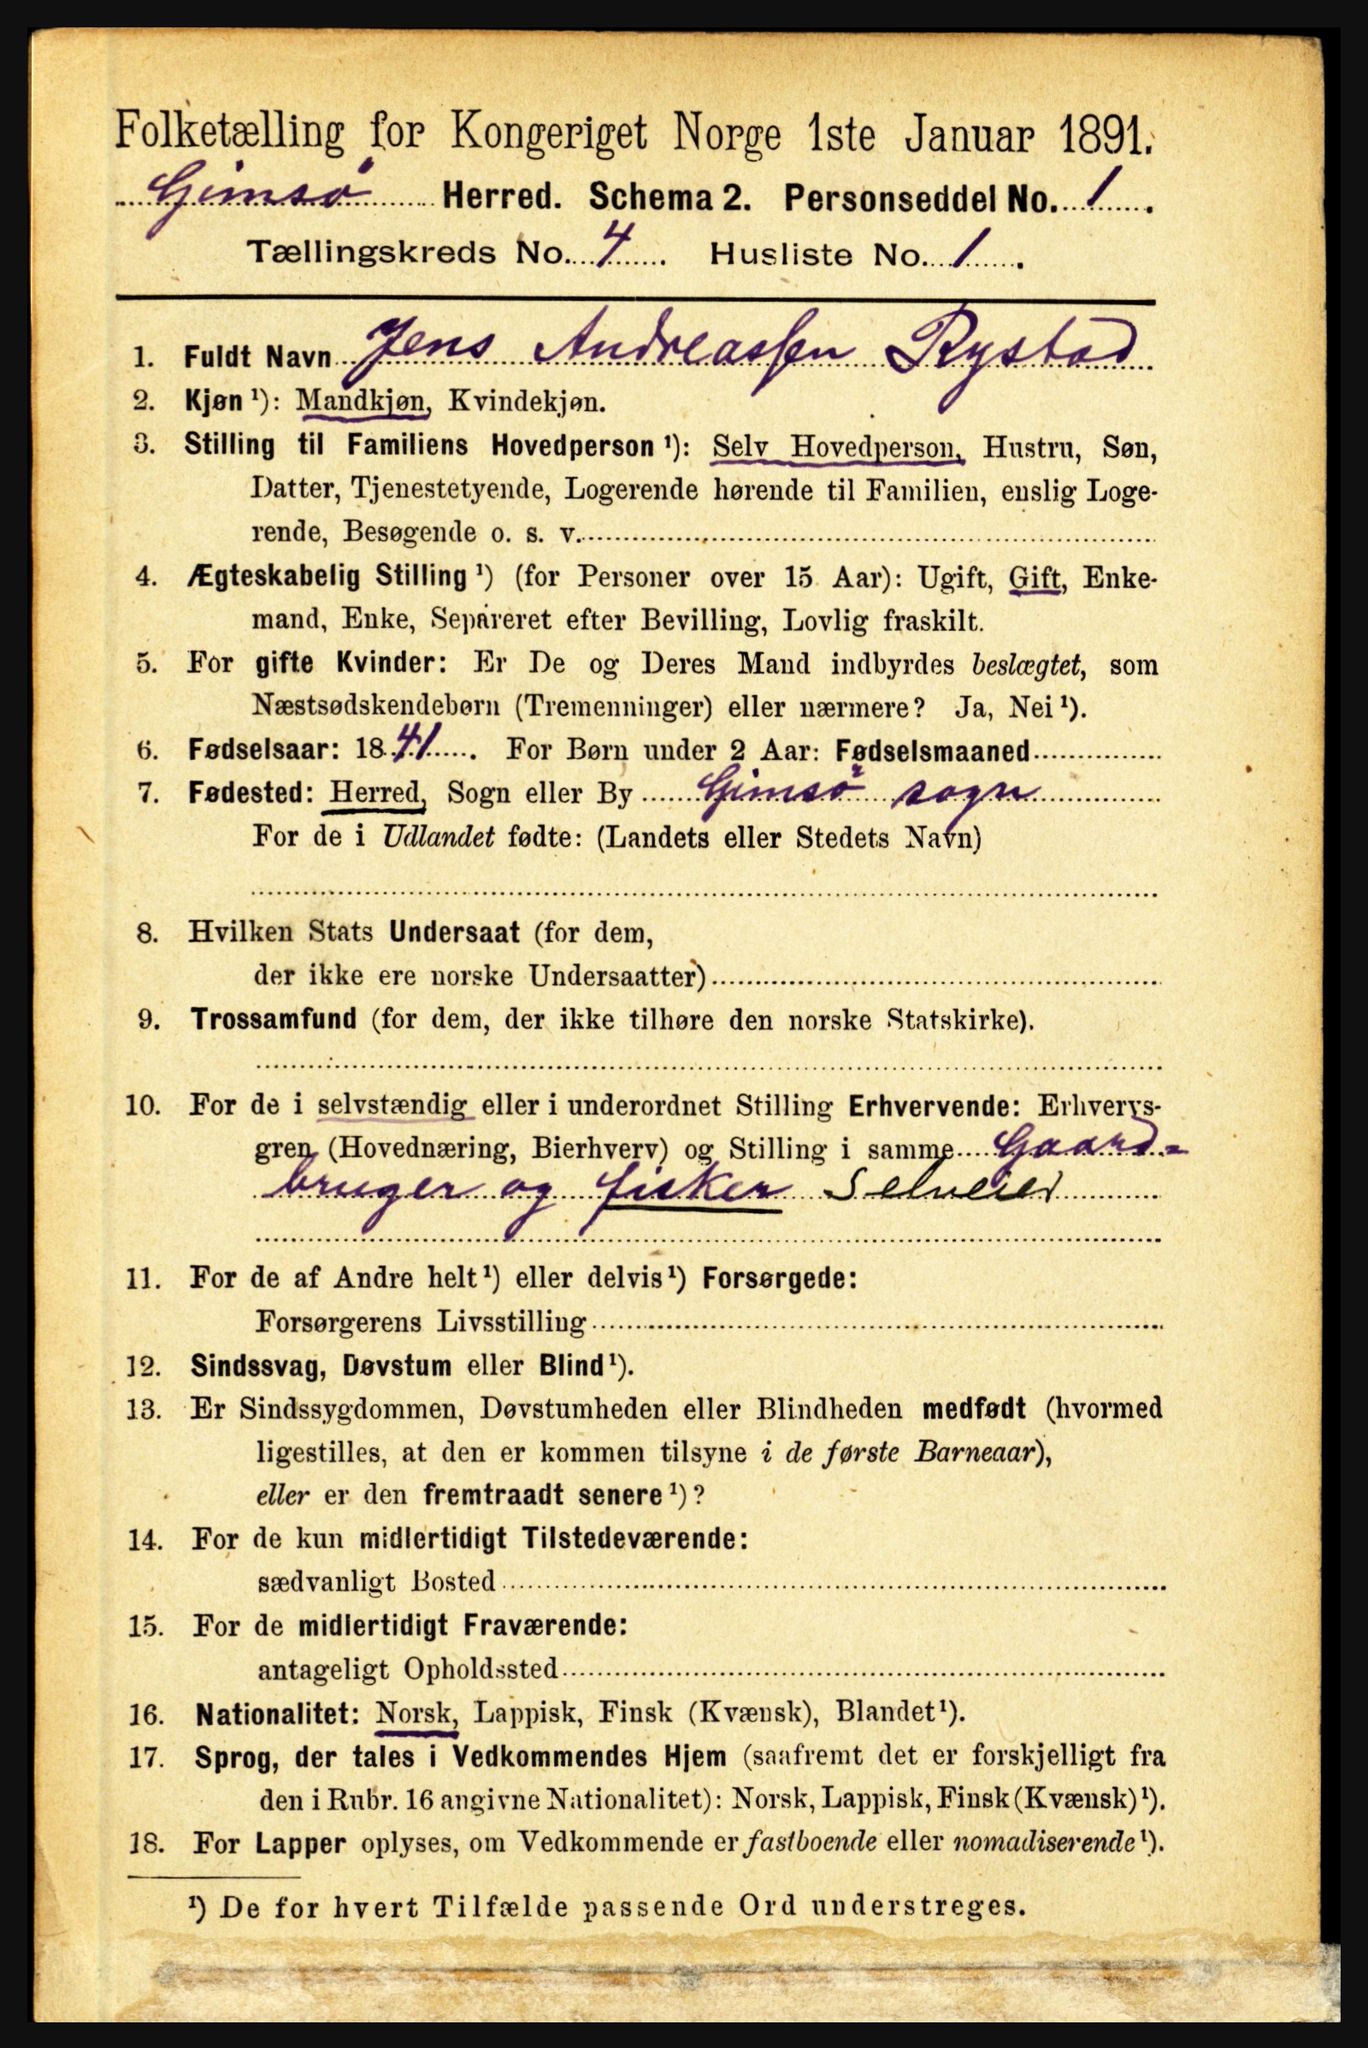 Folketælling for Kongeriget Norge 1ste Januar 1891.
Gimsø Herred. Schema 2. Personseddel No. 1.
Tællingskreds No. 4. Husliste No. 1.
1. Fuldt Navn Jens Andreassen Rystad
2. Kjøn ¹): Mandkjøn, Kvindekjøn.
3. Stilling til Familiens Hovedperson ¹): Selv Hovedperson, Hustru, Søn,
Datter, Tjenestetyende, Logerende hørende til Familien, enslig Loge-
rende, Besøgende o. s. v.
4. Ægteskabelig Stilling ¹) (for Personer over 15 Aar): Ugift, Gift, Enke-
mand, Enke, Separeret efter Bevilling, Lovlig fraskilt.
5. For gifte Kvinder: Er De og Deres Mand indbyrdes beslægtet, som
Næstsødskendebørn (Tremenninger) eller nærmere? Ja, Nei ¹).
6. Fødselsaar: 1841. For Børn under 2 Aar: Fødselsmaaned
7. Fødested: Herred, Sogn eller By Gimsø sogn
For de i Udlandet fødte: (Landets eller Stedets Navn)
8. Hvilken Stats Undersaat (for dem,
der ikke ere norske Undersaatter)
9. Trossamfund (for dem, der ikke tilhøre den norske Statskirke).
10. For de i selvstændig eller i underordnet Stilling Erhvervende: Erhvervs-
gren (Hovednæring, Bierhverv) og Stilling i samme Gaard-
bruger og fisker Selveier
11. For de af Andre helt ¹) eller delvis ¹) Forsørgede:
Forsørgerens Livsstilling
12. Sindssvag, Døvstum eller Blind ¹).
13. Er Sindssygdommen, Døvstumheden eller Blindheden medfødt (hvormed
ligestilles, at den er kommen tilsyne i de første Barneaar),
eller er den fremtraadt senere ¹)?
14. For de kun midlertidigt Tilstedeværende:
sædvanligt Bosted
15. For de midlertidigt Fraværende:
antageligt Opholdssted
16. Nationalitet: Norsk, Lappisk, Finsk (Kvænsk), Blandet ¹).
17. Sprog, der tales i Vedkommendes Hjem (saafremt det er forskjelligt fra
den i Rubr. 16 angivne Nationalitet): Norsk, Lappisk, Finsk (Kvænsk) ¹).
18. For Lapper oplyses, om Vedkommende er fastboende eller nomadiserende ¹).
¹) De for hvert Tilfælde passende Ord understreges.